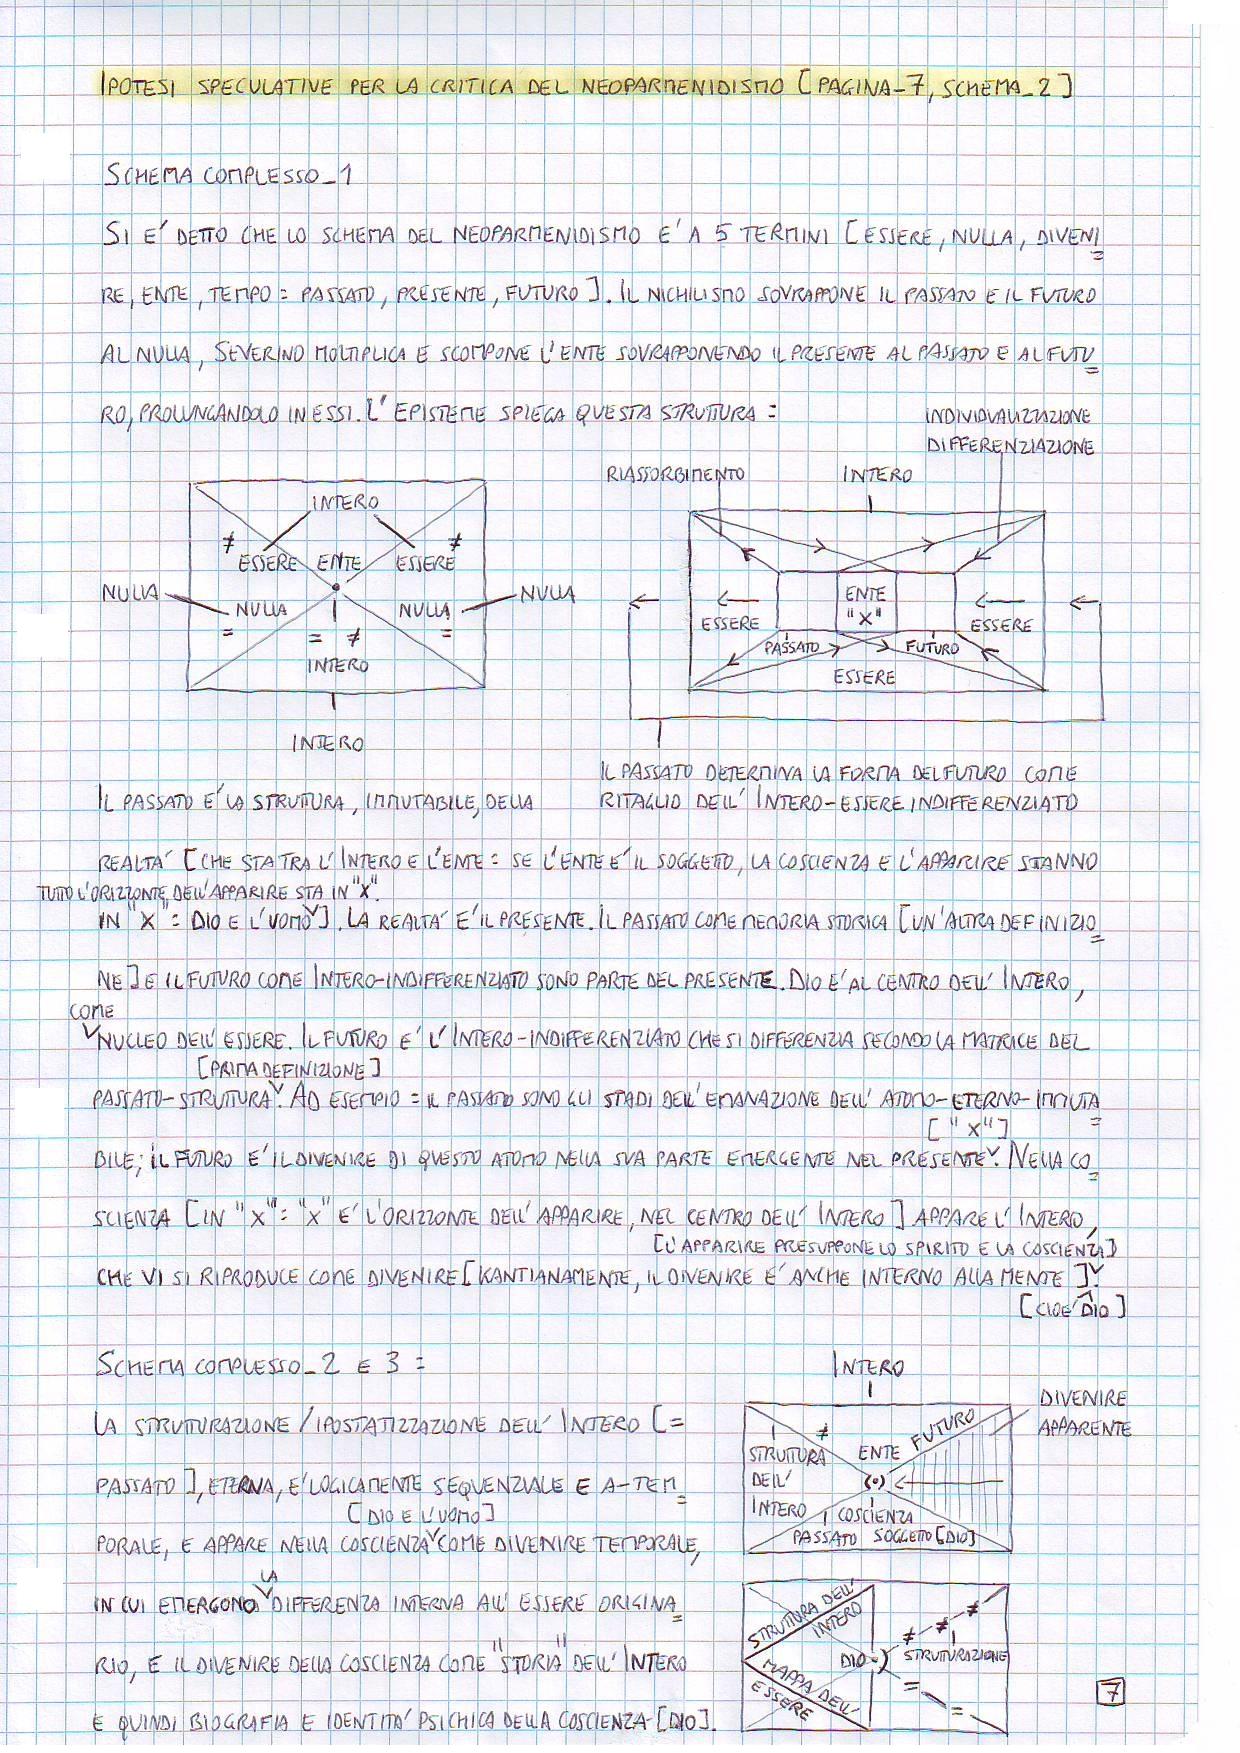 IPOTESI SPECULATIVE PER LA CRITICA DEL NEOPARMENIDISMO [PAGINA_7, SCHEMA_2]
SCHEMA COMPLESSO_1
SI E' DETTO CHE LO SCHEMA DEL NEOPARMENIDISMO E' A 5 TERMINI [ESSERE, NULLA, DIVENI=
RE, ENTE, TEMPO = PASSATO, PRESENTE, FUTURO]. IL NICHILISMO SOVRAPPONE IL PASSATO E IL FUTURO
AL NULLA, SEVERINO MOLTIPLICA E SCOMPONE L'ENTE SOVRAPPONENDO IL PRESENTE AL PASSATO E AL FUTU=
RO, PROLUNGANDOLO IN ESSI. L'EPISTEME SPIEGA QUESTA STRUTTURA =
INDIVIDUALIZZAZIONE
DIFFERENZIAZIONE
RIASSORBIMENTO
INTERO
INTERO
≠ ≠
ESSERE ENTE ESSERE
NULLA NULLA NULLA NULLA
= = ≠ =
INTERO
INTERO
ENTE
"X"
ESSERE ESSERE
PASSATO FUTURO
ESSERE
IL PASSATO DETERMINA LA FORMA DEL FUTURO COME
RITAGLIO DELL'INTERO-ESSERE INDIFFERENZIATO
IL PASSATO E' LA STRUTTURA, IMMUTABILE, DELLA
REALTA' [CHE STA TRA L'INTERO E L'ENTE = SE L'ENTE E' IL SOGGETTO, LA COSCIENZA E L'APPARIRE STANNO
TUTTO L'ORIZZONTE DELL'APPARIRE STA IN "X".
IN "X" = DIO E L'UOMO]. LA REALTA' E' IL PRESENTE. IL PASSATO COME MEMORIA STORICA [UN'ALTRA DEFINIZIO=
NE] E IL FUTURO COME INTERO-INDIFFERENZIATO SONO PARTE DEL PRESENTE. DIO E' AL CENTRO DELL'INTERO,
COME
NUCLEO DELL'ESSERE. IL FUTURO E' L'INTERO-INDIFFERENZIATO CHE SI DIFFERENZIA SECONDO LA MATRICE DEL
[PRIMA DEFINIZIONE]
PASSATO-STRUTTURA. AD ESEMPIO = IL PASSATO SONO GLI STADI DELL'EMANAZIONE DELL'ATOMO-ETERNO-IMMUTA=
["X"]
BILE; IL FUTURO E' IL DIVENIRE DI QUESTO ATOMO NELLA SUA PARTE EMERGENTE NEL PRESENTE. NELLA CO=
SCIENZA [IN "X" = "X" E' L'ORIZZONTE DELL'APPARIRE, NEL CENTRO DELL'INTERO] APPARE L'INTERO,
[L'APPARIRE PRESUPPONE LO SPIRITO E LA COSCIENZA]
CHE VI SI RIPRODUCE COME DIVENIRE [KANTIANAMENTE, IL DIVENIRE E' ANCHE INTERNO ALLA MENTE].
[CIOE' DIO]
SCHEMA COMPLESSO_2 E 3 =
INTERO
DIVENIRE
APPARENTE
LA STRUTTURAZIONE/IPOSTATIZZAZIONE DELL'INTERO [=
PASSATO], ETERNA, E' LOGICAMENTE SEQUENZIALE E A-TEM=
[DIO E L'UOMO]
PORALE, E APPARE NELLA COSCIENZA COME DIVENIRE TEMPORALE,
LA
IN CUI EMERGONO DIFFERENZA INTERNA ALL'ESSERE ORIGINA=
RIO, E IL DIVENIRE DELLA COSCIENZA COME "STORIA" DELL'INTERO
E QUINDI BIOGRAFIA E IDENTITA' PSICHICA DELLA COSCIENZA-[DIO].
≠
FUTURO
STRUTTURA ENTE
DELL'
INTERO COSCIENZA
PASSATO SOGGETTO [DIO]
STRUTTURA DELL'
INTERO
≠ ≠ ≠
DIO STRUTTURAZIONE
MAPPA DELL'
ESSERE
= =
7